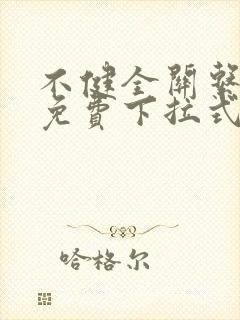 不健全關繫
免費下拉式
哈格尔